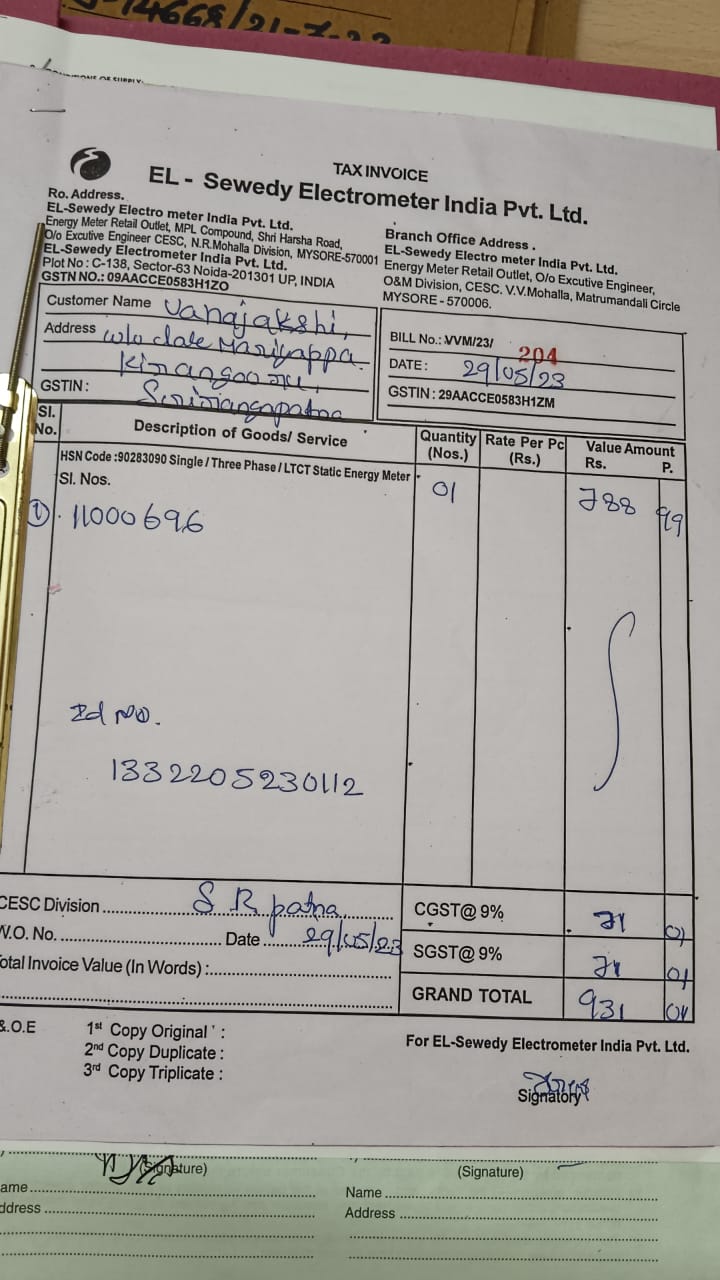 14668/21-7-23
TAX INVOICE
EL - Sewedy Electrometer India Pvt. Ltd.
Ro. Address.
EL-Sewedy Electro meter India Pvt. Ltd.
Energy Meter Retail Outlet, MPL Compound, Shri Harsha Road,
O/o Excutive Engineer CESC, N.R.Mohalla Division, MYSORE-570001
EL-Sewedy Electrometer India Pvt. Ltd.
Plot No : C-138, Sector-63 Noida-201301 UP, INDIA
GSTN NO.: 09AACCE0583H1ZO
Branch Office Address .
EL-Sewedy Electro meter India Pvt. Ltd.
Energy Meter Retail Outlet, O/o Excutive Engineer,
O&M Division, CESC. V.V.Mohalla, Matrumandali Circle
MYSORE - 570006.
Customer Name Vanajakshi,
Address w/o Late Mariyappa.
GSTIN :
BILL No.: VVM/23/ 204
DATE : 29/05/23
GSTIN : 29AACCE0583H1ZM
Sl. No. Description of Goods/ Service Quantity (Nos.) Rate Per Pc (Rs.) Value Amount Rs. P.
HSN Code :90283090 Single / Three Phase / LTCT Static Energy Meter
Sl. Nos. 01 788 99
① . 11000696
Id No.
1332205230112
CESC Division S R patna
W.O. No. Date 29/05/23
Total Invoice Value (In Words) :
CGST@ 9% 71 01
SGST@ 9% 71 01
GRAND TOTAL 931 01
&.O.E
1st Copy Original ' :
2nd Copy Duplicate :
3rd Copy Triplicate :
For EL-Sewedy Electrometer India Pvt. Ltd.
Signatory
(Signature) (Signature)
ame Name
ddress Address